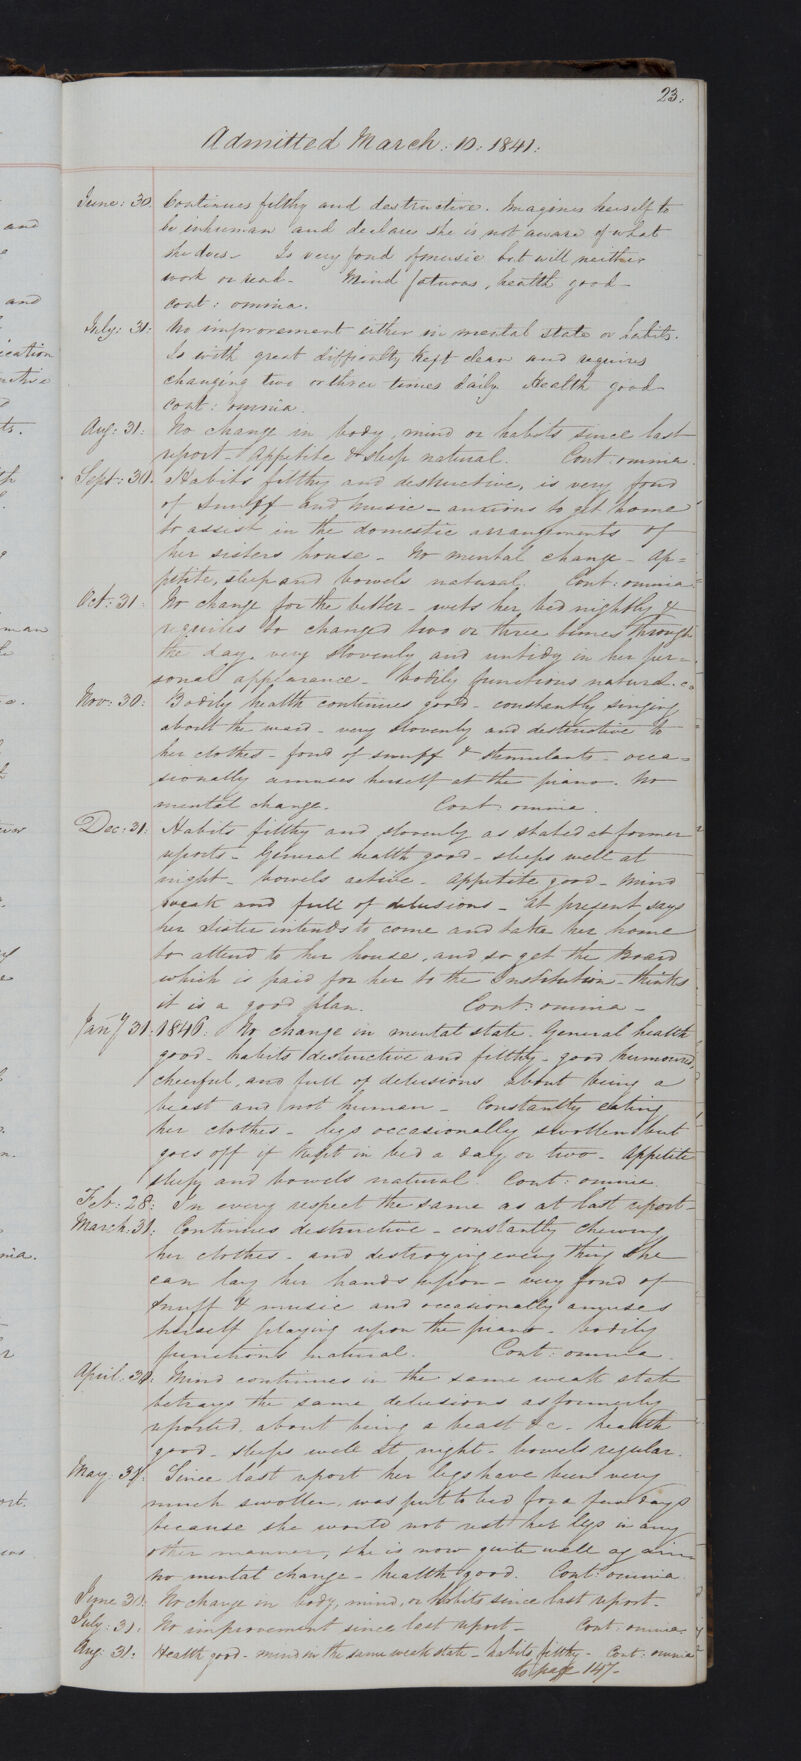 23.
Admitted March: 10: 1841:
June: 30. Continues filthy and destructive. Imagines herself to
be inhuman and declares she is not aware of what
she does - Is very fond of music but will neither
work or read - Mind fatuous, health good -
cont: omnia.
July: 31: No improvement either in mental state or habits.
Is with great difficulty kept clean and requires
changing two or three times daily. Health good -
cont: omnia.
Aug: 31: No change in body, mind or habits since last
report - Appetite & sleep natural. Cont: omnia.
Sept: 30. Habits filthy and destructive, is very fond
of snuff and music - anxious to get home
to assist in the domestic arrangements of
her sisters house - No mental change - Ap=
petite, sleep and bowels natural. Cont: omnia.
Oct: 31: No change for the better - wets her bed nightly &
requires to changed two or three times through
the day, very slovenly and untidy in her per=
sonal appearance - bodily functions natural.
Nov: 30: Bodily health continues good - constantly singing
about the ward - very slovenly and destructive to
her clothes - fond of snuff & stimulants - occa=
sionally amuses herself at the piano. No
mental change. Cont: omnia.
Dec: 31: Habits filthy and slovenly as stated at former
reports - General health good - sleeps well at
night - bowels active - appetite good - Mind
weak and full of delusions - at present says
her Sister intends to come and take her home
to attend to her house, and so get the Board
which is paid for her to the Institution - thinks
it is a good plan. Cont: omnia -
Jany 31: 1846: No change in mental state. General health
good - habits destructive and filthy - good humoured,
cheerful, and full of delusions about being a
beast and not human - Constantly eating
her clothes - legs occasionally swollen but
goes off if kept in bed a day or two - Appetite
sleep and bowels natural. Cont: omnia.
Feb: 28: In every respect the same as at last report -
March: 31: Continues destructive - constantly chewing
her clothes - and destroying every thing she
can lay her hands upon - very fond of
snuff & music and occasionally amuses
herself playing upon the piano - bodily
functions natural. Cont: omnia.
April: 30: Mind continues in the same weak state
betrays the same delusions as formerly
reported, about being a beast &c - health
good - sleeps well at night - bowels regular.
May 31: Since last report her legs have been very
much swollen, was put to bed for a few days
because she would not rest her legs in any
other manner, she is now quite well again -
no mental change - health good. Cont: omnia.
June 30: No change in body, mind, or habits since last report -
July: 31. No improvement since last report - Cont: omnia.
Aug: 31. Health good - mind in the same weak state - habits filthy - Cont: omnia
to page 147 -